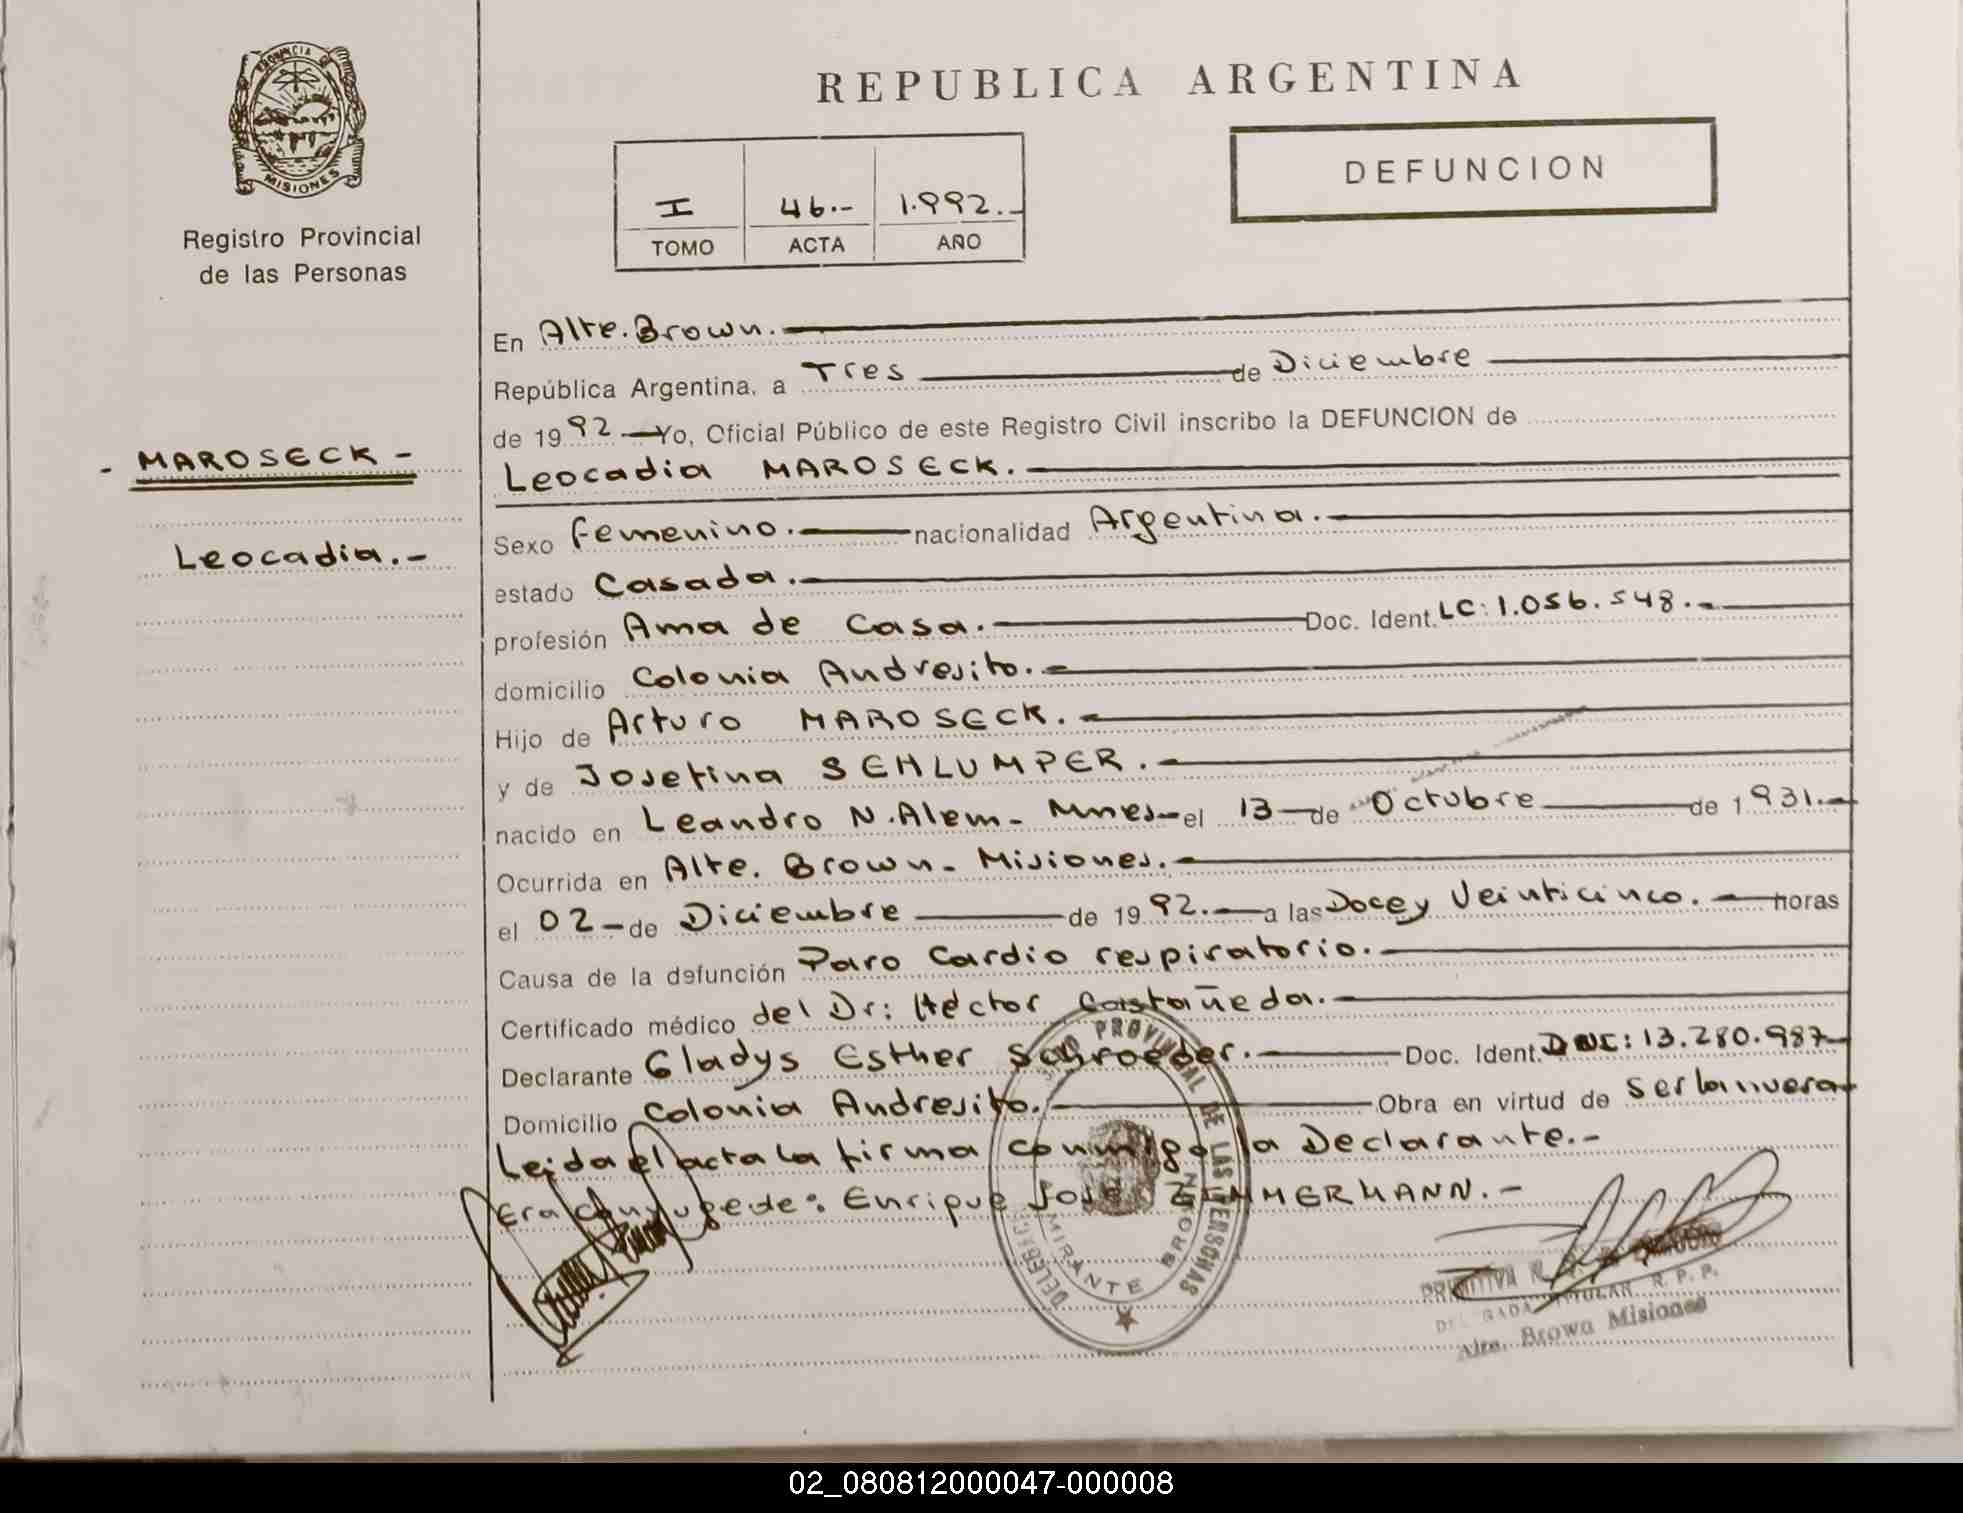 PROVINCIA DE
MISIONES
Registro Provincial
de las Personas
- MAROSECK -
Leocadia.-
REPUBLICA ARGENTINA
I 46.- 1.992.-
TOMO ACTA AÑO
DEFUNCION
En Alte. Brown.
República Argentina, a Tres de Diciembre
de 1992 Yo, Oficial Público de este Registro Civil inscribo la DEFUNCION de
Leocadia MAROSECK.
Sexo Femenino. nacionalidad Argentina.
estado Casada.
profesión Ama de Casa. Doc. Ident. LC: 1.056.548.-
domicilio Colonia Andresito.
Hijo de Arturo MAROSECK.
y de Josefina SEHLUMPER.
nacido en Leandro N. Alem - Mnes- el 13 de Octubre de 1931.-
Ocurrida en Alte. Brown - Misiones.
el 02 - de Diciembre de 1992.- a las Doce y Veinticinco. horas
Causa de la defunción Paro Cardio respiratorio.
Certificado médico del Dr: Héctor Castañeda.
Declarante Gladys Esther Schroeder. Doc. Ident. DNI: 13.280.987
Domicilio Colonia Andresito. Obra en virtud de ser la nuera
Leida el acta la firma conmigo la Declarante.-
Era conyuge de: Enrique José ZIMMERMANN.-
PROVINCIAL DE LAS PERSONAS
BROWN
TITULAR R. P. P.
Alte. Brown Misiones
02_080812000047-000008